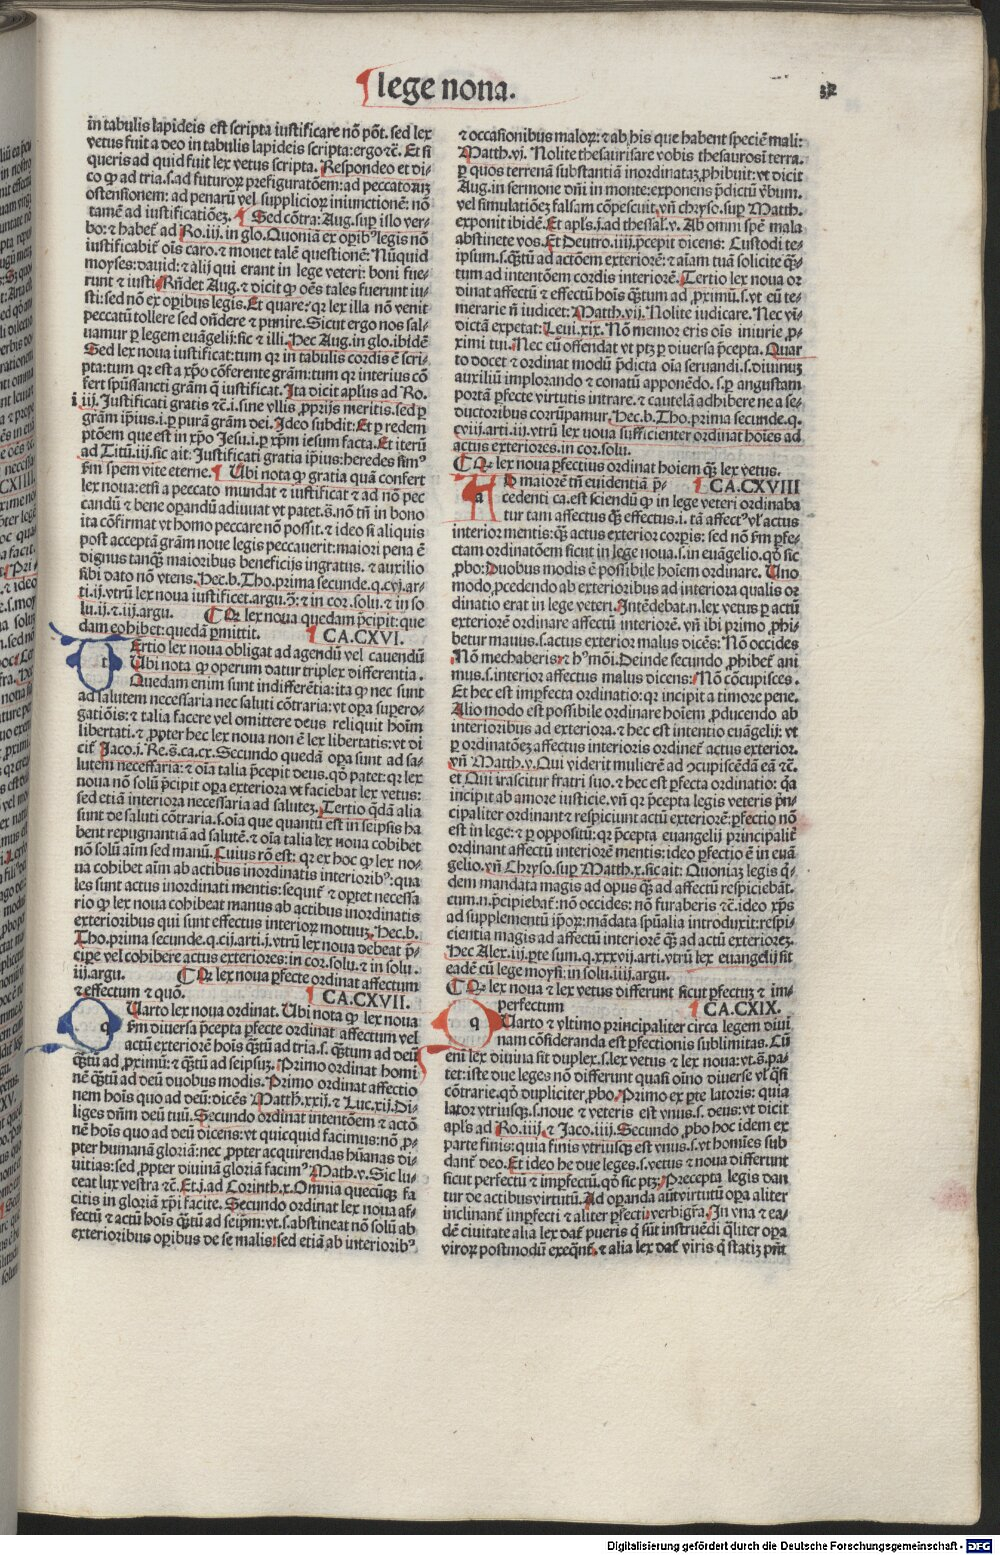 lege nona.
in tabulis lapideis est scripta iustificare nõ põt. sed lex
vetus fuit a deo in tabulis lapideis scripta: ergo ⁊c̃. Et si
queris ad quid fuit lex vetus scripta. Respondeo et di-
co ꝙ ad tria. s. ad futuroꝝ prefiguratõem: ad peccatoꝝ
ostensionem: ad penarũ vel supplicioꝝ iniunctionẽ: nõ
tamẽ ad iustificatiõeʒ. Sed cõtra: Aug. suꝑ isto ver-
bo: ⁊ habet̃ ad Ro. iij. in glo. Quoniã ex oꝑibꝰ legis nõ
iustificabit̃ oĩs caro. ⁊ mouet talẽ questionẽ: Nũquid
moyses: dauid: ⁊ alij qui erant in lege veteri: boni fue-
runt ⁊ iusti. Rñdet Aug. ⁊ dicit ꝙ oẽs tales fuerunt iu-
sti: sed nõ ex oꝑibus legis. Et quare: qꝛ lex illa nõ venit
peccatũ tollere sed oñdere ⁊ punire. Sicut ergo nos sal-
uamur ꝑ legem euãgelij: sic ⁊ illi. Hec Aug. in glo. ibidẽ
Sed lex noua iustificat: tum qꝛ in tabulis cordis ẽ scri-
pta: tum qꝛ est a xp̃o cõferente grãm: tum qꝛ interius cõ
fert sp̃ussancti grãm q̃ iustificat. Ita dicit apl̃us ad Ro.
iij. Iustificati gratis ⁊c̃. i. sine vllis ꝓprijs meritis. sed ꝑ
grãm ip̃ius. i. ꝑ purã grãm dei. Ideo subdit: Et ꝑ redem
ptõem que est in xp̃o Jesu. i. ꝑ xp̃m iesum facta. Et iterũ
ad Titũ. iij. sic ait: Iustificati gratia ip̃ius: heredes simꝰ
ẽm spem vite eterne. Ubi nota ꝙ gratia quã confert
lex noua: etsi a peccato mundat ⁊ iustificat ⁊ ad nõ pec
candũ ⁊ bene oꝑandũ adiuuat vt patet. s̃. nõ tñ in bono
ita cõfirmat vt homo peccare nõ possit. ⁊ ideo si aliquis
post acceptã grãm noue legis peccauerit: maiori pena ẽ
dignus tanq̃ʒ maioribus beneficijs ingratus. ⁊ auxilio
sibi dato nõ vtens. Hec. b. Tho. prima secunde. q. cvj. ar-
ti. ij. vtrũ lex noua iustificet. argu. ꝯ̃: ⁊ in cor. solu. ⁊ in so
lu. ij. ⁊ iij. argu. Qꝛ lex noua quedam p̃cipit: que
dam cohibet: quedã ꝑmittit. CA. CXVI.
Ertio lex noua obligat ad agendũ vel cauendũ
Ubi nota ꝙ operum datur triplex differentia.
Quedam enim sunt indifferẽtia: ita ꝙ nec sunt
ad salutem necessaria nec saluti cõtraria: vt oꝑa supero-
gatiõis: ⁊ talia facere vel omittere deus reliquit hoĩm
libertati. ⁊ ꝓpter hec lex noua non ẽ lex libertatis: vt di
cit̃ Jaco. j. Re. s̃. ca. cx. Secundo quedã oꝑa sunt ad sa-
lutem necessaria: ⁊ oĩa talia p̃cepit deus. qd̃ patet: qꝛ lex
noua nõ solũ p̃cipit oꝑa exteriora vt faciebat lex vetus:
sed etiã interiora necessaria ad saluteʒ. Tertio q̃dã alia
sunt de saluti cõtraria. s. oĩa que quantũ est in seipsis ha
bent repugnantiã ad salutẽ. ⁊ oĩa talia lex noua cohibet
nõ solũ aĩm sed manũ. Cuius rõ est: qꝛ ex hoc ꝙ lex no-
ua cohibet aĩm ab actibus inordinatis interioribꝰ: qua
les sunt actus inordinati mentis: sequit̃ ⁊ oꝑtet necessa
rio ꝙ lex noua cohibeat manus ab actibus inordinatis
exterioribus qui sunt effectus interioꝝ motuuʒ. Hec. b.
Tho. prima secunde. q. cij. arti. j. vtrũ lex noua debeat p̃-
ciꝑe vel cohibere actus exteriores: in cor. solu. ⁊ in solu.
iij. argu. Qꝛ lex noua ꝑfecte ordinat affectum
⁊ effectum ⁊ quõ. CA. CXVII.
Uarto lex noua ordinat. Ubi nota ꝙ lex noua
ẽm diuersa p̃cepta ꝑfecte ordinat affectum vel
actũ exteriorẽ hoĩs q̃ʒtũ ad tria. s. q̃ʒtum ad deũ
q̃ʒtũ ad ꝓximũ: ⁊ q̃ʒtũ ad seipsuʒ. Primo ordinat homi
nẽ q̃ʒtũ ad deũ duobus modis. Primo ordinat affectio
nem hoĩs quo ad deũ: dicẽs Matth. xxij. ⁊ Luc. xij. Di-
liges dñm deũ tuũ. Secundo ordinat intentõem ⁊ actõ
nẽ hoĩs quo ad deũ dicens: vt quicquid facimus: nõ ꝓ-
pter humanã gloriã: nec ꝓpter acquirendas hũanas di-
uitias: sed ꝓpter diuinã gloriã facimꝰ. Math. v. Sic lu-
ceat lux vestra ⁊c̃. Et. j. ad Corinth. x. Omnia quecũqʒ fa
citis in gloriã xp̃i facite. Secundo ordinat lex noua af-
fectũ ⁊ actũ hoĩs q̃ʒtũ ad seip̃m: vt. s. abstineat nõ solũ ab
exterioribus oꝑibus de se malis: sed etiã ab interioribꝰ
⁊ occasionibus maloꝝ: ⁊ ab his que habent speciẽ mali:
Matth. vj. Nolite thesaurisare vobis thesauros ĩ terra.
ꝑ quos terrenã substantiã inordinataʒ ꝓhibuit: vt dicit
Aug. in sermone dñi in monte: exponens p̃dictũ v̉bum.
vel simulatiõeʒ falsam cõpescuit. vñ chryso. suꝑ Matth.
exponit ibidẽ. Et apl̃s. j. ad thessal. v. Ab omni spẽ mala
abstinete vos. Et Deutro. iiij. p̃cepit dicens: Custodi te-
ipsum. s. q̃ʒtũ ad actõem exteriorẽ: ⁊ aĩam tuã solicite q̃ʒ-
tum ad intentõem cordis interiorẽ. Tertio lex noua or
dinat affectũ ⁊ effectũ hoĩs q̃ʒtum ad ꝓximũ. s. vt eũ te-
merarie ñ iudicet: Matth. vij. Nolite iudicare. Nec vi-
dictã expetat: Leui. xix. Nõ memor eris oĩs iniurie ꝓ-
ximi tui. Nec eũ offendat vt ptʒ ꝑ diuersa p̃cepta. Quar
to docet ⁊ ordinat modũ p̃dicta oĩa seruandi. s. diuinuʒ
auxiliũ implorando ⁊ conatũ apponẽdo. s. ꝑ angustam
portã ꝑfecte virtutis intrare. ⁊ cautelã adhibere ne a se-
ductoribus corrũpamur. Hec. b. Tho. prima secunde. q.
cviij. arti. iij. vtrũ lex noua sufficienter ordinat hoĩes ad
actus exteriores. in cor. solu.
Qꝛ lex noua ꝑfectius ordinat hoĩem q̃ʒ lex vetus.
D maiorẽ tñ euidentiã p̃- CA. CXVIII
cedenti ca. est sciendũ ꝙ in lege veteri ordinaba
tur tam affectus q̃ʒ effectus. i. tã affectꝰ vl̓ actus
interior mentis: q̃ʒ actus exterior corꝑis: sed nõ ẽm ꝑfe-
ctam ordinatõem sicut in lege noua. s. in euãgelio. qd̃ sic
ꝓbo: Duobus modis ẽ possibile hoĩem ordinare. Uno
modo ꝓcedendo ab exterioribus ad interiora qualis or
dinatio erat in lege veteri. Intẽdebat. n. lex vetus ꝑ actũ
exteriorẽ ordinare affectũ interiorẽ. vñ ibi primo ꝓhi-
betur manus. s. actus exterior malus dicẽs: Nõ occides
Nõ mechaberis: ⁊ hꝰmõi. Deinde secundo ꝓhibet̃ ani
mus. s. interior affectus malus dicens: Nõ cõcupisces.
Et hec est imꝑfecta ordinatio: qꝛ incipit a timore pene.
Alio modo est possibile ordinare hoĩem ꝓducendo ab
interioribus ad exteriora. ⁊ hec est intentio euãgelij: vt
ꝑ ordinatõeʒ affectus interioris ordinet̃ actus exterior.
vñ Matth. v. Qui viderit mulierẽ ad ꝯcupiscẽdã eã ⁊c̃.
et Qui irascitur fratri suo. ⁊ hec est ꝑfecta ordinatio: q̃a
incipit ab amore iusticie. vñ qꝛ p̃cepta legis veteris p̃n-
cipaliter ordinant ⁊ respiciunt actũ exteriorẽ: ꝑfectio nõ
est in lege: ⁊ ꝑ oppositũ: qꝛ p̃cepta euangelij principaliẽ
ordinant affectũ interiorẽ mentis: ideo ꝑfectio ẽ in euã
gelio. vñ Chryso. suꝑ Matth. x. sic ait: Quoniaʒ legis q̃-
dem mandata magis ad opus q̃ʒ ad affectũ respiciebãt.
cum. n. p̃cipiebat̃: nõ occides: nõ furaberis ⁊c̃. ideo xp̃s
ad supplementũ ip̃oꝝ: mãdata sp̃ualia introduxit: respi-
cientia magis ad affectũ interiorẽ q̃ʒ ad actũ exterioreʒ.
Hec Alex. iij. ꝑte sum. q. xxxvij. arti. vtrũ lex euangelij sit
eadẽ cũ lege moysi: in solu. iiij. argu.
Qꝛ lex noua ⁊ lex vetus differunt sicut ꝑfectuʒ ⁊ im-
perfectum CA. CXIX.
Uarto ⁊ vltimo principaliter circa legem diui
nam cõsideranda est ꝑfectionis sublimitas. Cũ
eni lex diuina sit duplex. s. lex vetus ⁊ lex noua: vt. s̃. pa-
tet: iste due leges nõ differunt quasi oĩno diuerse vl̓ q̃si
cõtrarie. qd̃ dupliciter ꝓbo. Primo ex ꝑte latoris: quia
lator vtriusqʒ. s. noue ⁊ veteris est vnus. s. deus: vt dicit
apl̓s ad Ro. iiij. ⁊ Jaco. iiij. Secundo ꝓbo hoc idem ex
parte finis: quia finis vtriusqʒ est vnus. s. vt homĩes sub
dant̃ deo. Et ideo he due leges. s. vetus ⁊ noua differunt
sicut ꝑfectũ ⁊ imꝑfectũ. qd̃ sic ptʒ: Precepta legis dan
tur de actibus virtutũ. Ad oꝑanda aũt virtutũ oꝑa aliter
inclinant̃ imꝑfecti ⁊ aliter ꝑfecti: verbigr̃a. In vna ⁊ ea-
dẽ ciuitate alia lex dat̃ pueris q̃ sũt instruẽdi q̃liter oꝑa
viroꝝ postmodũ exeq̃nt̃. ⁊ alia lex dat̃ viris q̃ statiʒ p̃nt
Digitalisierung gefördert durch die Deutsche Forschungsgemeinschaft - DFG